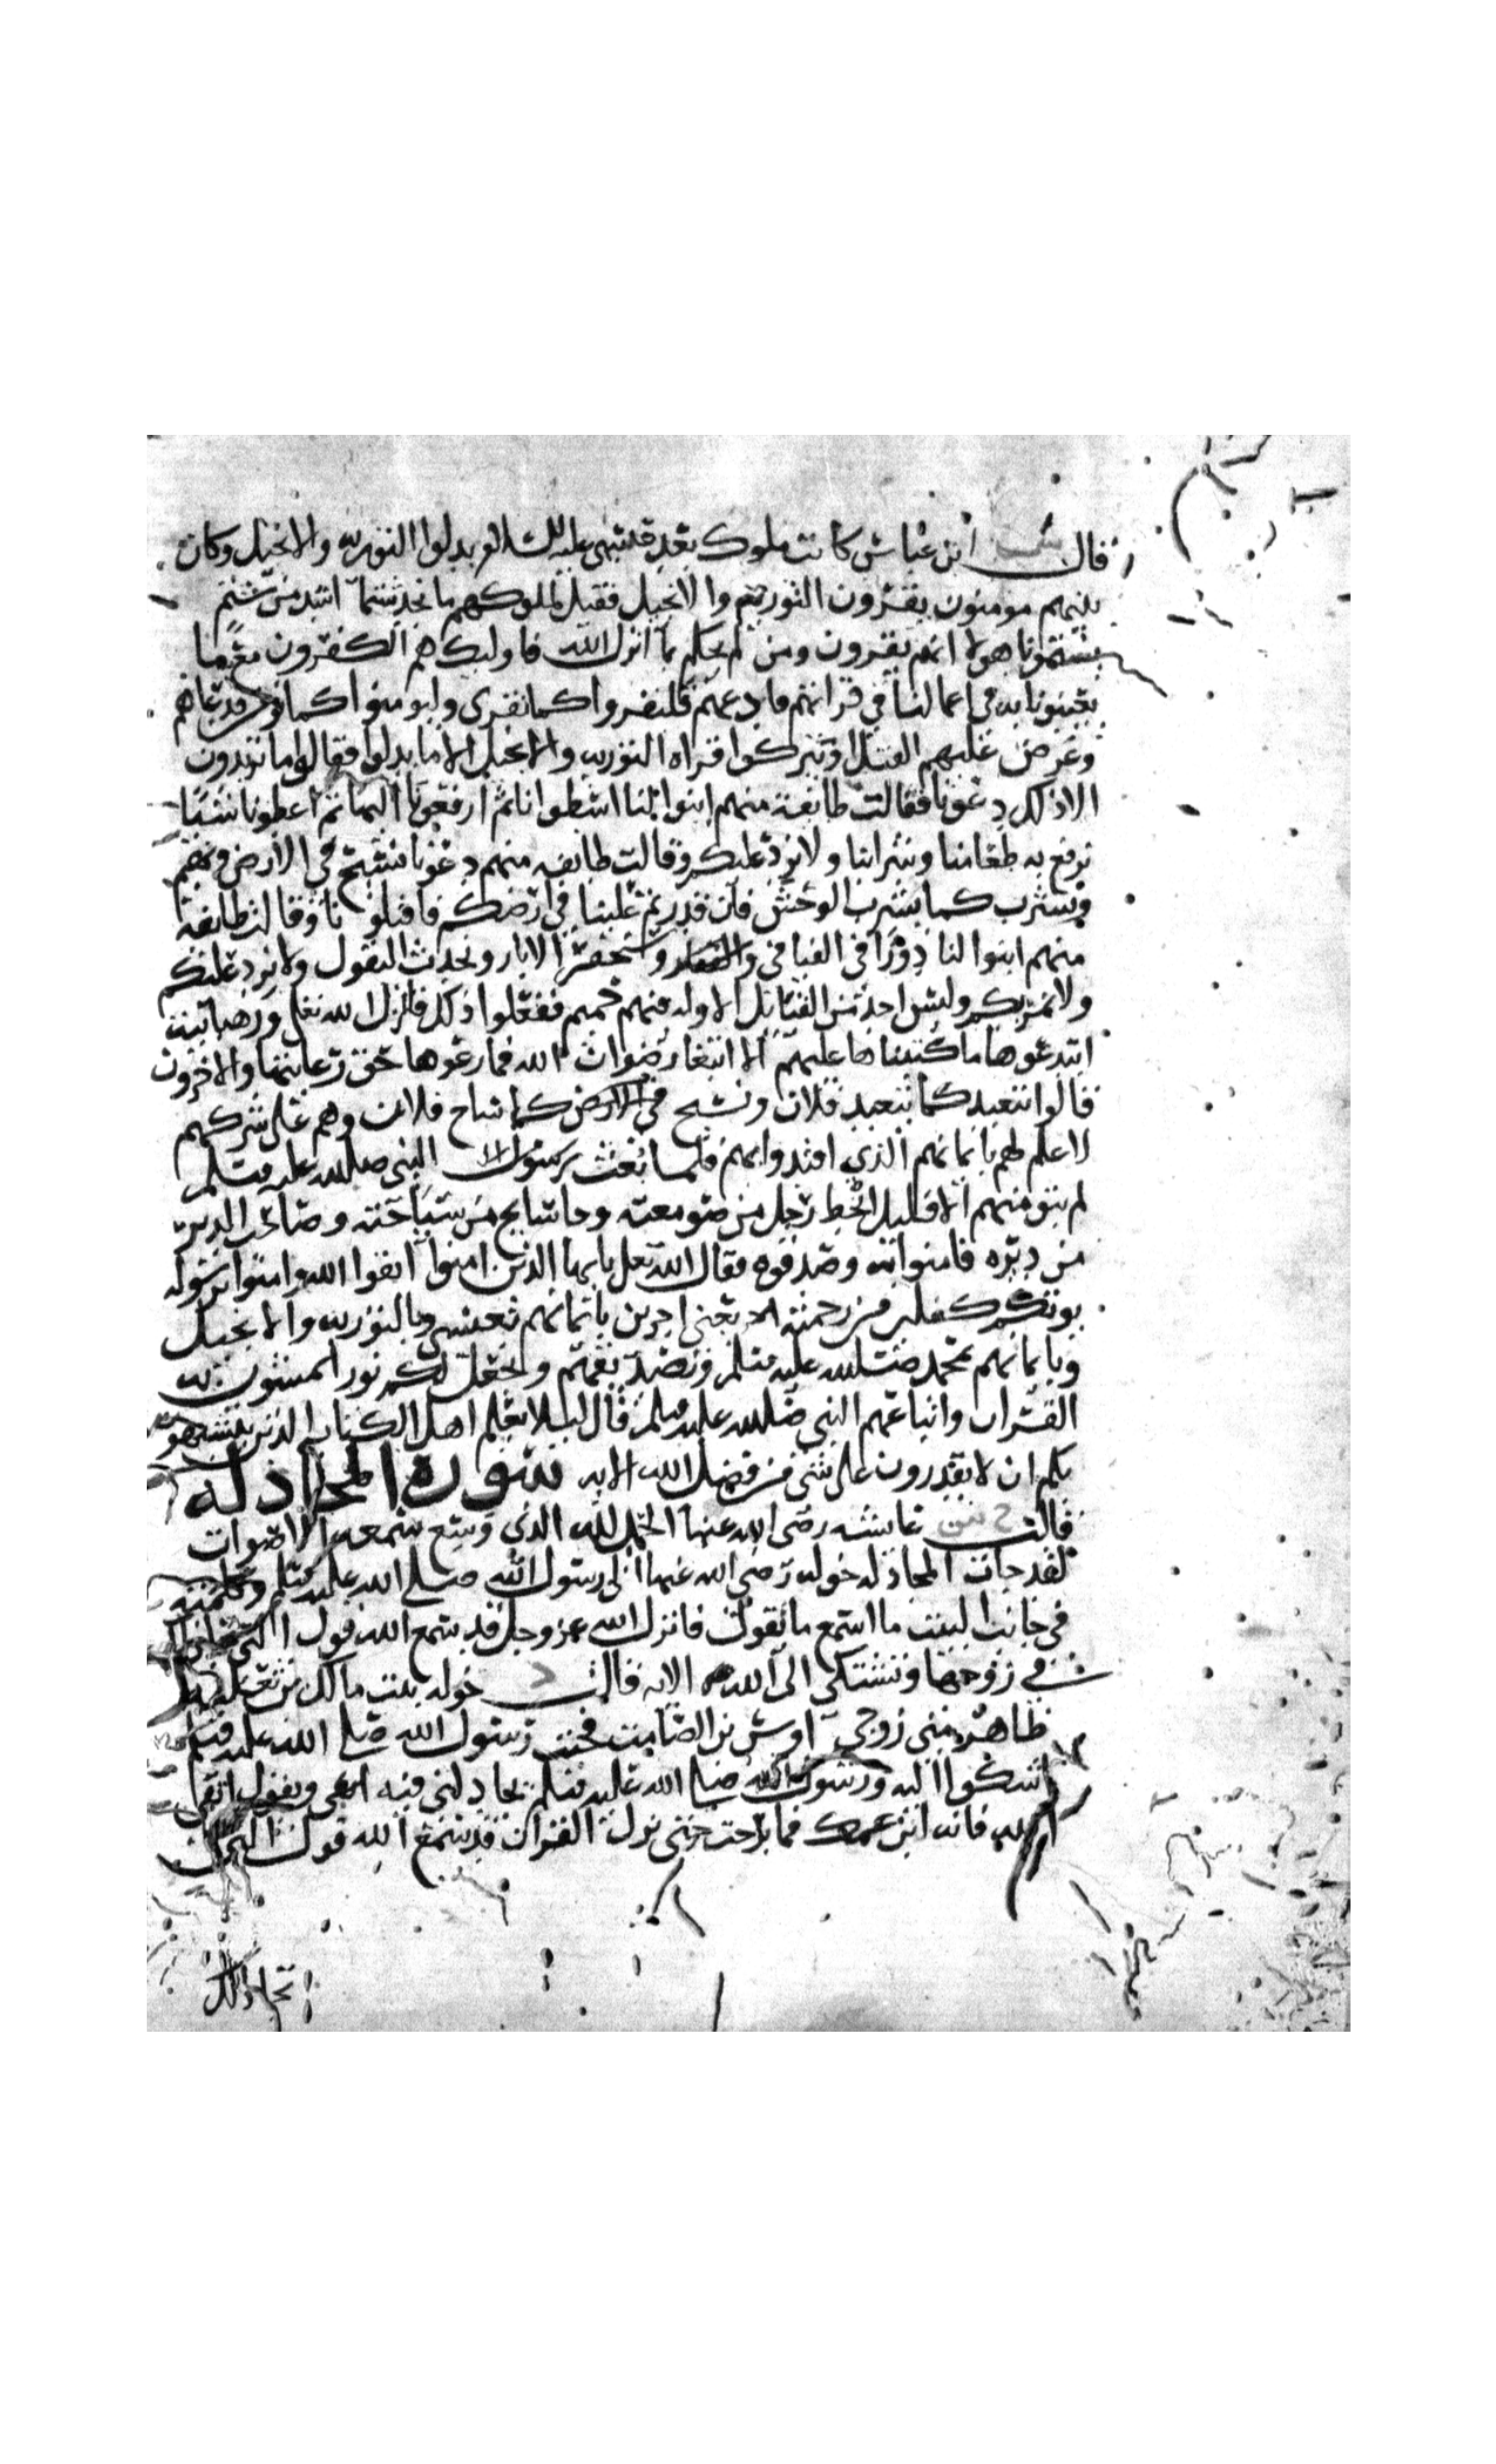 قال ابن عباس كانت ملوك بعد عيسى عليه السلام بدلوا التورية والانجيل وكان
بينهم مومنون يقرون التورية والانجيل فقيل لملوكهم ما نجد شتما اشد من شتم
يشتمونا هولا انهم يقرون ومن لم يحكم بما انزل الله فاوليك هم الكفرون مع ما
يعيبونا به في اعمالنا في قراتهم فادعهم فليقروا كما نقرى وليومنوا كما فدعاهم
وعرض عليهم القتل او يتركوا قراه التورية والانجيل الا ما بدلوا فقالوا ما تريدون
الا ذلك دعونا فقالت طايفة منهم ابنوا لنا اسطوانا ثم ارفعونا اليها ثم اعطونا شيا
نرفع به طعامنا وشرابنا ولا نرد عليكم وقالت طايفه منهم دعونا نسيح في الارض ونهيم
ونشرب كما يشرب الوحش فان قدرتم علينا في ارضكم فاقتلونا وقالت طايفه
منهم ابنوا لنا دورا في الفيافي ونحتفر الابار ونحدث البقول ولا نرد عليكم
ولا نمر بكم وليس احد من القبايل الا وله منهم حميم ففعلوا ذلك فانزل الله تعلى ورهبانية
ابتدعوها ما كتبناها عليهم الا ابتغا رضوان الله فما رعوها حق رعايتها والاخرون
قالوا نتعبد كما تعبد فلان ونسيح في الارض كما ساح فلان وهم على شركهم
لا علم لهم بايمانهم الذي اقتدوا بهم فلما بعث النبي صلى الله عليه وسلم
لم يبق منهم الا قليل انحط رجل من صومعته وجا سايح من سياحته وصاحب الدير
من ديره فامنوا به وصدقوه فقال الله تعلى يايها الذين امنوا اتقوا الله وامنوا برسوله
يوتكم كفلين من رحمته اجرين بايمانهم بعيسى وبالتورية والانجيل
وبايمانهم بمحمد صلى الله عليه وسلم وتصديقهم ويجعل لكم نورا تمشون به
القران واتباعهم النبي صلى الله عليه وسلم قال ليلا يعلم اهل الكتاب الذين يتشبهون
بكم ان لا يقدرون على شي من فضل الله الايه سورة المجادله
قالت عايشه رضى الله عنها الحمد لله الذي وسع سمعه الاصوات
لقد جات المجادله خوله رضي الله عنها الى رسول الله صلى الله عليه وسلم وكلمته
في جانب البيت ما اسمع ما تقول فانزل الله عز وجل قد سمع الله قول التي تجادلك
في زوجها وتشتكى الى الله الايه قالت خوله بنت مالك بن ثعلبه
ظاهر منى زوجي اوس بن الصامت فجيت رسول الله صلى الله عليه وسلم
اشكوا اليه ورسول الله صلى الله عليه وسلم يجادلني فيه ويقول اتقى
الله فانه ابن عمك فما برحت حتى نزل القران قد سمع الله قول التي
تجادلك